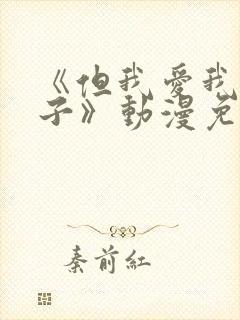 《但我愛我
子》動漫免
秦前紅